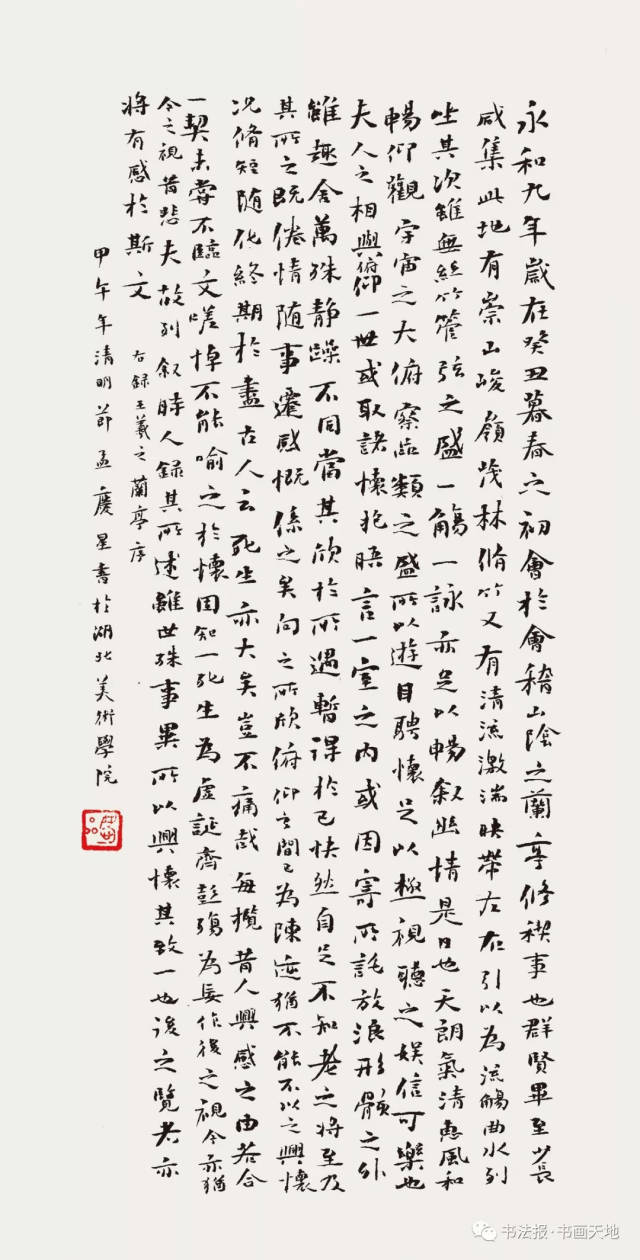 永和九年歲在癸丑暮春之初會於會稽山陰之蘭亭修禊事也群賢畢至少長
咸集此地有崇山峻嶺茂林脩竹又有清流激湍映帶左右引以為流觴曲水列
坐其次雖無絲竹管弦之盛一觴一詠亦足以暢敘幽情是日也天朗氣清惠風和
暢仰觀宇宙之大俯察品類之盛所以遊目騁懷足以極視聽之娛信可樂也
夫人之相與俯仰一世或取諸懷抱晤言一室之內或因寄所託放浪形骸之外
雖趣舍萬殊静躁不同當其欣於所遇暫得於己快然自足不知老之將至及
其所之既倦情随事遷感慨係之矣向之所欣俯仰之間已為陳迹猶不能不以之興懷
況脩短随化終期於盡古人云死生亦大矣豈不痛哉每攬昔人興感之由若合
一契未嘗不臨文嗟悼不能喻之於懷固知一死生為虛誕齊彭殤為妄作後之視今亦猶
今之視昔悲夫故列叙時人録其所述雖世殊事異所以興懷其致一也後之覽者亦
將有感於斯文
右録王羲之蘭亭序
甲午年清明節孟慶星書於湖北美術學院
书法报·书画天地